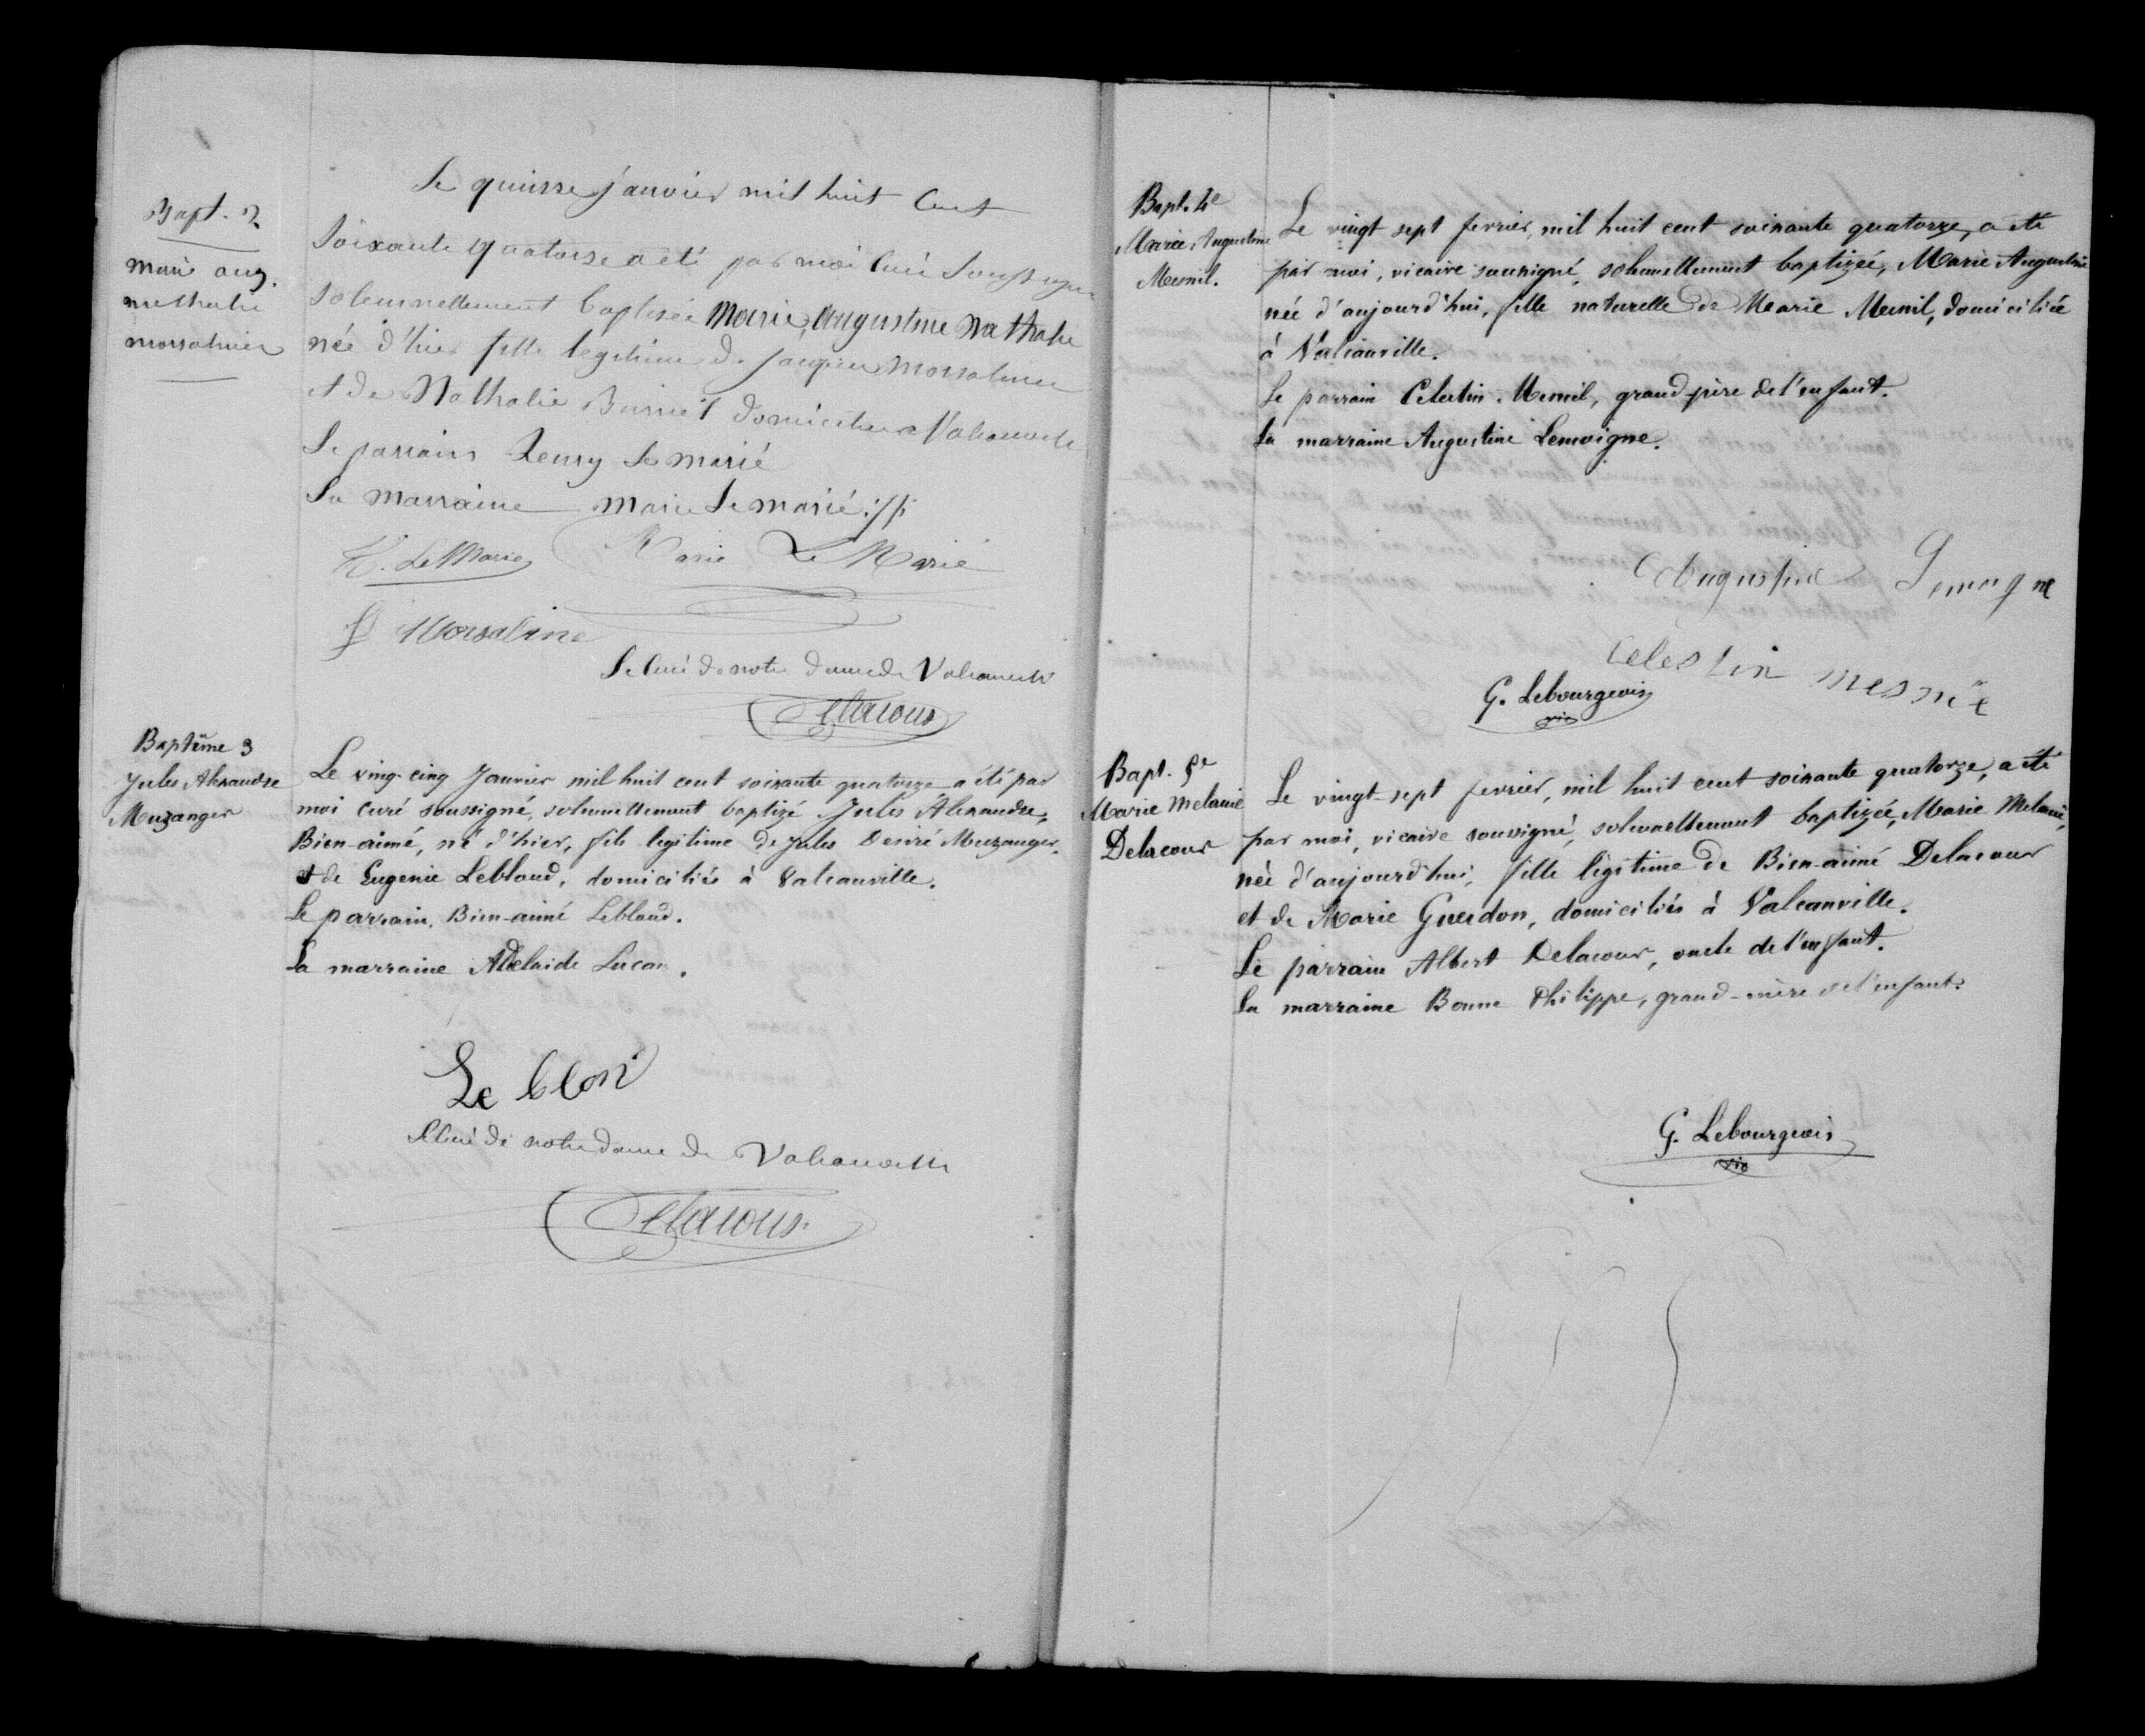 Bapt. 2
marie aug.
nathalie
morsaline
Le quinse janvier mil huit cent
soixante quatorse a été par moi curé soussigné
solennellement baptisée Marie, Augustine Nathalie
née d'hier fille legitime de jacques Morsaline
et de Nathalie Burnel domiciliés a Valcanville
Le parrain henry Le marié
La marraine marie Le marié
H. LeMarié Marie Le Marié
Morsaline
Le Curé de notre dame de Valcanville
Delacour
Baptême 3
Jules Alexandre
Muzanger
Le ving-cinq Janvier mil huit cent soixante quatorze a été par
moi curé soussigné, solennellement baptizé Jules Alexandre,
Bien-aimé, né d'hier, fils legitime de Jules Desiré Muzanger,
et de Eugenie Leblond, domiciliés à Valcanville.
Le parrain, Bien-aimé Leblond.
La marraine Adelaide Lucas.
Le blon
Le Curé de notre dame de Valcanville
Delacour
Bapt. 4e
Marie Augustine
Mesnil.
Le vingt sept fevrier, mil huit cent soixante quatorze, a été
par moi, vicaire soussigné, solennellement baptizée, Marie Augustine
née d'aujourd'hui, fille naturelle de Marie Mesnil, domiciliée
à Valcanville.
Le parrain Celestin Mesnil, grand-père de l'enfant.
La marraine Augustine Lemoigne.
Augustine Lemogne
celestin mesnil
G. Lebourgeois
vic
Bapt. 5e
Marie Melanie
Delacour
Le vingt-sept fevrier, mil huit cent soixante quatorze, a été
par moi, vicaire soussigné, solennellement baptizée, Marie Melanie,
née d'aujourd'hui, fille légitime de Bien-aimé Delacour
et de Marie Guerdon, domiciliés à Valcanville.
Le parrain Albert Delacour, oncle de l'enfant.
La marraine Bonne Philippe, grand-mère de l'enfant.
G. Lebourgeois
vic